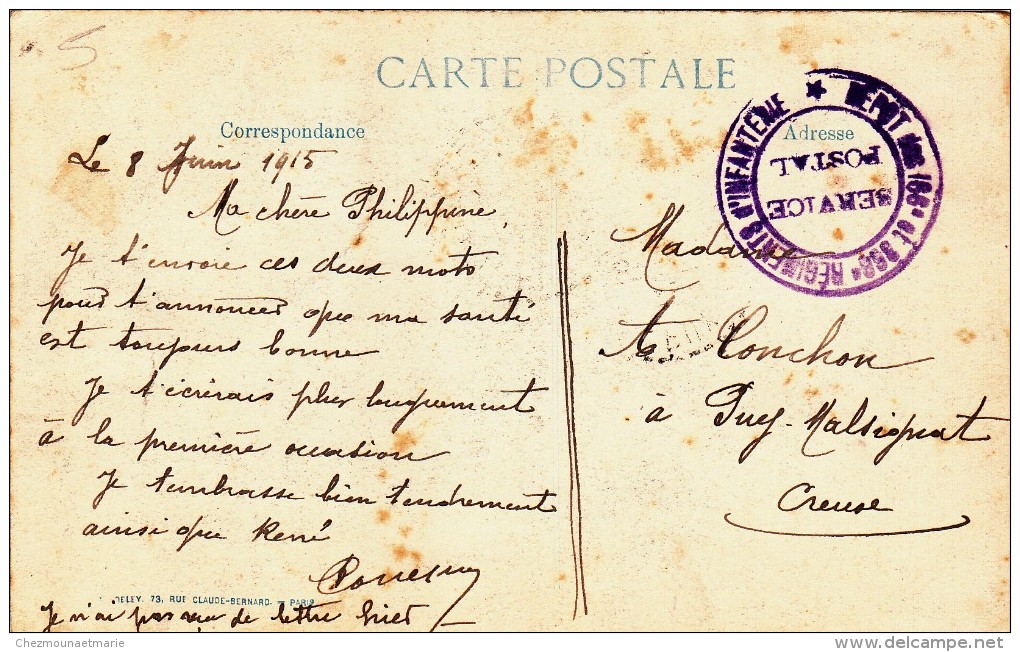 5
CARTE POSTALE
Correspondance
Adresse
Le 8 Juin 1915
Ma chère Philippine,
Je t'envoie ces deux mots
pour t'annoncer que ma santé
est toujours bonne
Je t'écrirais plus longuement
à la première occasion
Je t'embrasse bien tendrement
ainsi que René
DELEY, 73, RUE CLAUDE-BERNARD. — PARIS
Je n'ai pas de lettre hier
Madame
Conchon
à Puy-Malsignat
Creuse
DÉPÔT DES 168e et 368e RÉGIMENTS D'INFANTERIE ★
SERVICE
POSTAL
Chezmounaetmarie
delcampe.net